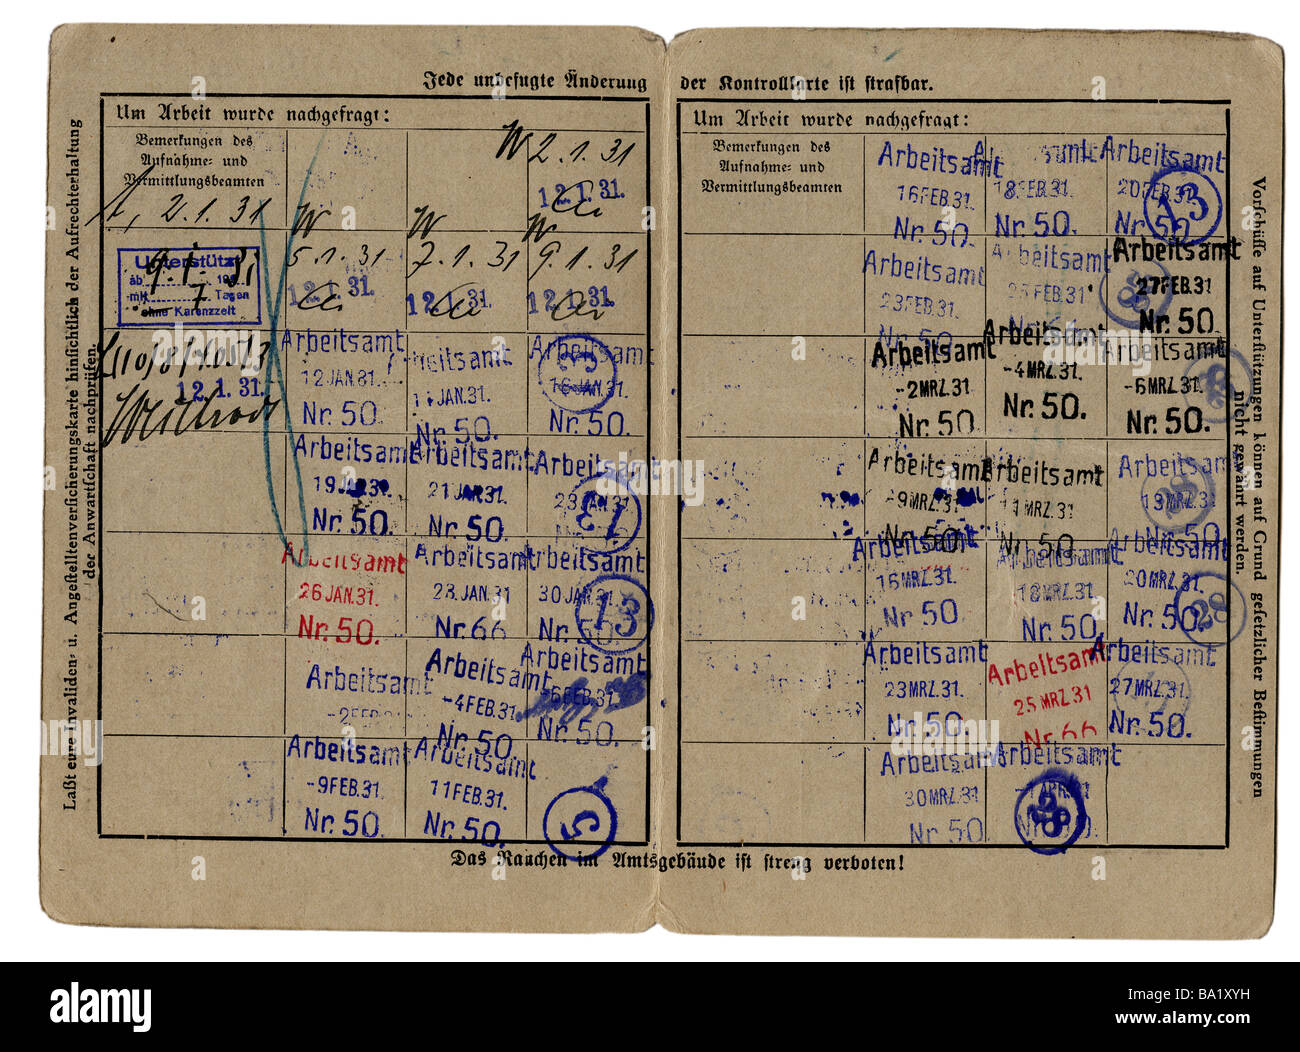 Jede unbefugte Änderung der Kontrollkarte ist strafbar.
Laßt eure Invaliden- u. Angestelltenversicherungskarte hinsichtlich der Aufrechterhaltung
der Anwartschaft nachprüfen.
Um Arbeit wurde nachgefragt:
Bemerkungen des
Aufnahme- und
Vermittlungsbeamten
W 2.1.31
12.1.31.
2.1.31
W W W
5.1.31 7.1.31 9.1.31
12.1.31. 12.1.31. 12.1.31.
Unterstützt
9.1.31
ab 193
mit 7 Tagen
ohne Karenzzeit
12.1.31.
Arbeitsamt Arbeitsamt Arbeitsamt
12 JAN. 31. JAN. 31. 16 JAN. 31.
Nr. 50. Nr. 50. Nr. 50.
13
Arbeitsamt Arbeitsamt Arbeitsamt
19 JAN. 31. 21 JAN. 31. 23 JAN. 31
Nr. 50. Nr. 50.
13
Arbeitsamt Arbeitsamt Arbeitsamt
26 JAN. 31. 28 JAN. 31 30 JAN. 31
Nr. 50. Nr. 66 Nr. 50.
13
Arbeitsamt Arbeitsamt Arbeitsamt
-2 FEB. -4 FEB. 31. -6 FEB. 31.
Nr. 50. Nr. 50.
Arbeitsamt Arbeitsamt
-9 FEB. 31. 11 FEB. 31.
Nr. 50. Nr. 50.
5
Um Arbeit wurde nachgefragt:
Bemerkungen des
Aufnahme- und
Vermittlungsbeamten
Arbeitsamt Arbeitsamt
16 FEB. 31. 18 FEB. 31. 20 FEB. 31.
Nr. 50. Nr. 50. Nr. 50.
13
Arbeitsamt Arbeitsamt Arbeitsamt
23 FEB. 31. 25 FEB. 31. 27 FEB. 31
Nr. 50.
Arbeitsamt Arbeitsamt Arbeitsamt
-2 MRZ. 31. -4 MRZ. 31. -6 MRZ. 31.
Nr. 50. Nr. 50. Nr. 50.
Arbeitsamt Arbeitsamt Arbeitsamt
-9 MRZ. 31 11 MRZ. 31 13 MRZ. 31
Nr. 50. Nr. 50. Nr. 50.
28
Arbeitsamt Arbeitsamt Arbeitsamt
16 MRZ. 31. 18 MRZ. 31. 20 MRZ. 31.
Nr. 50 Nr. 50. Nr. 50.
28
Arbeitsamt Arbeitsamt Arbeitsamt
23 MRZ. 31. 25 MRZ. 31 27 MRZ. 31.
Nr. 50. Nr. 66 Nr. 50.
Arbeitsamt Arbeitsamt
30 MRZ. 31 -1 APR. 31
Nr. 50 Nr. 50
28
Vorschüsse auf Unterstützungen können auf Grund gesetzlicher Bestimmungen
nicht gewährt werden.
Das Rauchen im Amtsgebäude ist streng verboten!
alamy
Image ID: BA1XYH
www.alamy.com